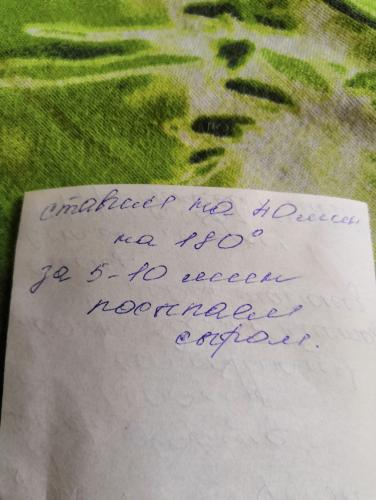 ставим на 40 мин
на 180°
за 5-10 мин
посыпаем
сыром.